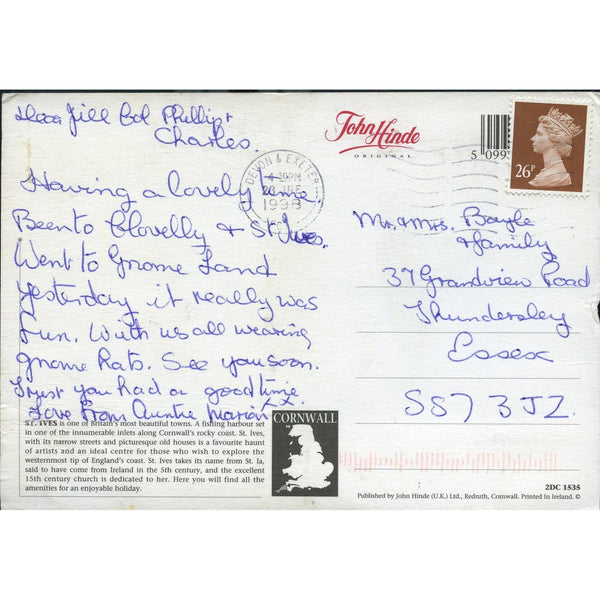 Dear Jill Bob Phillip +
Charles.
Having a lovely time
Been to Clovelly + St Ives.
Went to Gnome Land
yesterday it really was
fun. With us all wearing
gnome hats. See you soon.
Trust you had a good time
Love from Auntie Marion xx
John Hinde
ORIGINAL
5 099
26P
DEVON & EXETER
4-30PM
28 JNE
1998
Mr + Mrs. Bayle
+ family
37 Grandview Road
Thundersley
Essex
SS7 3JZ
ST. IVES is one of Britain's most beautiful towns. A fishing harbour set
in one of the innumerable inlets along Cornwall's rocky coast. St. Ives,
with its narrow streets and picturesque old houses is a favourite haunt
of artists and an ideal centre for those who wish to explore the
westernmost tip of England's coast. St. Ives takes its name from St. Ia,
said to have come from Ireland in the 5th century, and the excellent
15th century church is dedicated to her. Here you will find all the
amenities for an enjoyable holiday.
CORNWALL
2DC 1535
Published by John Hinde (U.K.) Ltd., Redruth, Cornwall. Printed In Ireland. ©